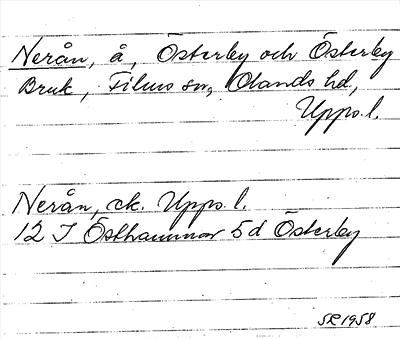 Nerån, å, Österby och Österby
Bruk, Films sn, Olands hd,
Upps. l.
Nerån, ek. Upps. l.
12 I Östhammar 5d Österby
SR 1958